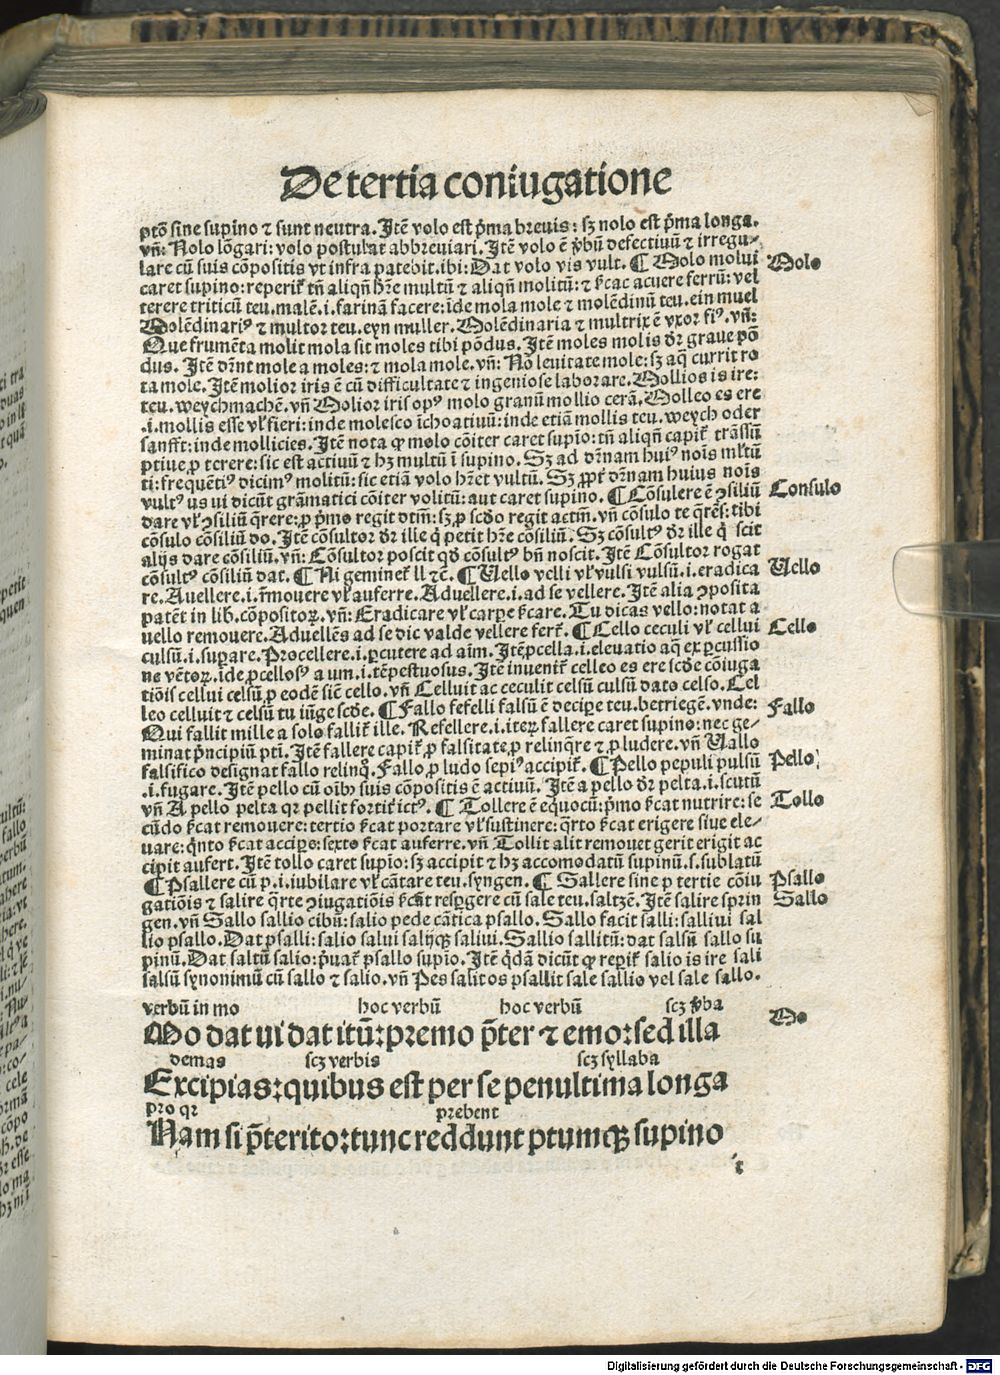 De tertia coniugatione
ptõ sine supino ⁊ sunt neutra. Itẽ volo est p̃ma breuis: sꝫ nolo est p̃ma longa.
vñ: Nolo lõgari: volo postulat abbreuiari. Itẽ volo ẽ v̓bũ defectiuũ ⁊ irregu-
lare cũ suis cõpositis vt infra patebit. ibi: Dat volo vis vult. ¶ Molo molui
Molo
caret supino: reperiť tñ aliqñ hr̃e multũ ⁊ aliqñ molitũ: ⁊ ẜcac acuere ferrũ: vel
terere triticũ teu. malẽ .i. farinã facere: ĩde mola mole ⁊ molẽdinũ teu. ein muel
Molẽdinariꝰ ⁊ multor teu. eyn muller. Molẽdinaria ⁊ multrix ẽ vxor fiꝰ. vñ:
Que frumẽta molit mola sit moles tibi põdus. Itẽ moles molis dr̃ graue põ
dus. Itẽ dr̃nt mole a moles: ⁊ mola mole. vñ: Nõ leuitate mole: sꝫ aq̃ currit ro
ta mole. Itẽ molior iris ẽ cũ difficultate ⁊ ingeniose laborare. Mollios is ire:
teu. weychmachẽ. vñ Molior iris opꝰ molo granũ mollio cerã. Molleo es ere
.i. mollis esse vľ fieri: inde molesco ĩchoatiuũ: inde etiã mollis teu. weych oder
sanfft: inde mollicies. Itẽ nota ꝙ molo cõiter caret supĩo: tñ aliqñ capiť trãssũ
ptiue ꝓ terere: sic est actiuũ ⁊ hꝫ multũ ĩ supino. Sꝫ ad dr̃nam huiꝰ noĩs ml̃tũ
ti: frequẽtiꝰ dicimꝰ molitũ: sic etiã volo hr̃et vultũ. Sꝫ ꝓpť dr̃nam huius noĩs
vultꝰ us ui dicũt grãmatici cõiter volitũ: aut caret supino. ¶ Cõsulere ẽ ꝯsiliũ
Consulo
dare vľ ꝯsiliũ q̃rere: ꝓ p̃mo regit dtm̃: sꝫ ꝓ scd̃o regit actm̃. vñ cõsulo te q̃rẽs: tibi
cõsulo cõsiliũ do. Itẽ cõsultor dr̃ ille q̃ petit hr̃e cõsiliũ. Sꝫ cõsultꝰ dr̃ ille q̃ scit
alijs dare cõsiliũ. vñ: Cõsultor poscit qď cõsultꝰ bñ noscit. Itẽ Cõsultor rogat
cõsultꝰ cõsiliũ dat. ¶ Ni gemineť ll ⁊c̃. ¶ Uello velli vľ vulsi vulsũ .i. eradica
Uello
re. Auellere .i. r̃mouere vľ auferre. Aduellere .i. ad se vellere. Itẽ alia ꝯposita
patẽt in lib. cõpositoꝝ. vñ: Eradicare vľ carpe ẜcare. Tu dicas vello: notat a
uello remouere. Aduellẽs ad se dic valde vellere ferť. ¶ Cello ceculi vľ cellui
Cello
culsũ .i. suꝑare. Procellere .i. ꝑcutere ad aĩm. Itẽ ꝓcella .i. eleuatio aq̃ ex ꝑcussio
ne vẽtoꝝ. ĩde ꝓcellosꝰ a um .i. tẽpestuosus. Itẽ inueniť celleo es ere scd̃e cõiuga
tiõis cellui celsũ ꝓ eodẽ siẽ cello. vñ Celluit ac ceculit celsũ culsũ dato celso. Cel
leo celluit ⁊ celsũ tu iũge scd̃e. ¶ Fallo fefelli falsũ ẽ decipe teu. betriegẽ. vnde:
Fallo
Qui fallit mille a solo falliť ille. Refellere .i. iteꝝ fallere caret supino: nec ge-
minat p̃ncipiũ ptĩ. Itẽ fallere capiť ꝓ falsitate ꝓ relinq̃re ⁊ ꝓ ludere. vñ Uallo
falsifico designat fallo relinq̃. Fallo ꝓ ludo sepiꝰ accipiť. ¶ Pello pepuli pulsũ
Pello
.i. fugare. Itẽ pello cũ oĩbꝫ suis cõpositis ẽ actiuũ. Itẽ a pello dr̃ pelta .i. scutũ
vñ A pello pelta qr pellit fortiť ictꝰ. ¶ Tollere ẽ equocũ: p̃mo ẜcat nutrire: se
Tollo
cũdo ẜcat remouere: tertio ẜcat portare vľ sustinere: q̃rto ẜcat erigere siue ele-
uare: q̃nto ẜcat accipe: sexto ẜcat auferre. vñ Tollit alit remouet gerit erigit ac
cipit aufert. Itẽ tollo caret supĩo: sꝫ accipit ⁊ hꝫ accomodatũ supinũ .s. sublatũ
¶ Psallere cũ p .i. iubilare vľ cãtare teu. syngen. ¶ Sallere sine p tertie cõiu
Psallo
gatiõis ⁊ salire q̃rte ꝯiugatiõis ẜcãt resꝑgere cũ sale teu. saltzẽ. Itẽ salire sprin
Sallo
gen. vñ Sallo sallio cibũ: salio pede cãtica psallo. Sallo facit salli: salliui sal
lio psallo. Dat psalli: salio salui salijqꝫ saliui. Sallio sallitũ: dat salsũ sallo su
pinũ. Dat saltũ salio: p̃uať psallo supĩo. Itẽ q̃dã dicũt ꝙ repiť salio is ire sali
salsũ synonimũ cũ sallo ⁊ salio. vñ Pes salit os psallit sale sallio vel sale sallo.
verbũ in mo hoc verbũ hoc verbũ scꝫ v̓ba
Mo dat ui dat itũ: premo p̃ter ⁊ emo: sed illa
Mo
demas scꝫ verbis scꝫ syllaba
Excipias: quibus est per se penultima longa
pro qr prebent
Nam si p̃terito: tunc reddunt ptumqꝫ supino
r
Digitalisierung gefördert durch die Deutsche Forschungsgemeinschaft - DFG